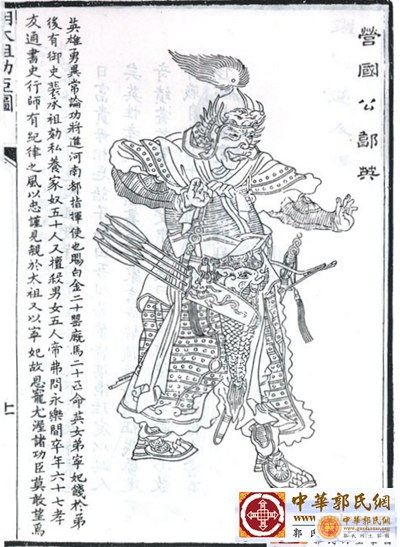 營國公郭英
英雄勇異常論功將進河南都指揮使也賜白金二十罌廄馬二十匹命英女弟寧妃餞於弟
後有御史裴承祖劾私養家奴五十人又擅殺男女五人帝弗問永樂間卒年六十七孝
友通書史行師有紀律之風以忠謹見親於太祖又以寧妃故恩寵尤渥諸功臣莫敢望焉
明太祖功臣圖
上
中華郭氏網